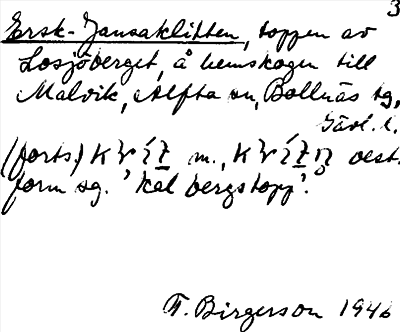 3
Ersk-Jansaklitten, toppen av
Losjöberget, å hemskogen till
Malvik, Alfta sn, Bollnäs tg,
Gävl. l.
(forts.) m., best.
form sg. 'kal bergstopp'.
F. Birgerson 1946